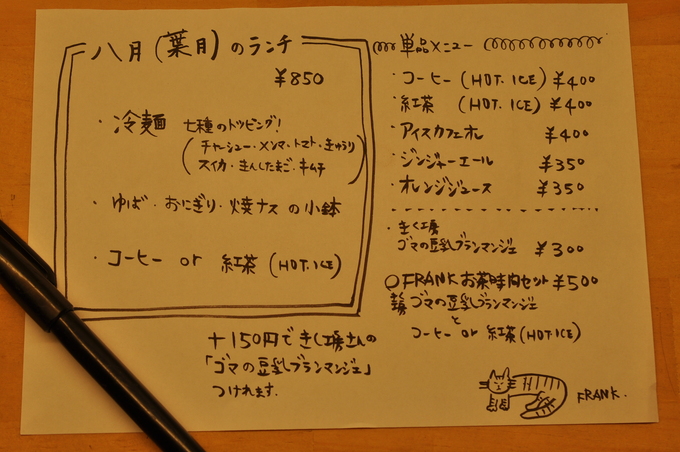 八月(葉月)のランチ
¥850
・冷麺 七種のトッピング!
(チャーシュー・メンマ・トマト・きゅうり
スイカ・きんしたまご・キムチ)
・ゆば・おにぎり・焼ナスの小鉢
・コーヒー or 紅茶(HOT.ICE)
+150円できく工房さんの
「ゴマの豆乳ブランマンジェ」
つけれます.
単品メニュー
・コーヒー(HOT.ICE)¥400
・紅茶(HOT.ICE)¥400
・アイスカフェオレ ¥400
・ジンジャーエール ¥350
・オレンジジュース ¥350
・きく工房
ゴマの豆乳ブランマンジェ ¥300
○FRANKお茶時間セット¥500
ゴマの豆乳ブランマンジェ
と
コーヒー or 紅茶(HOT ICE)
FRANK.